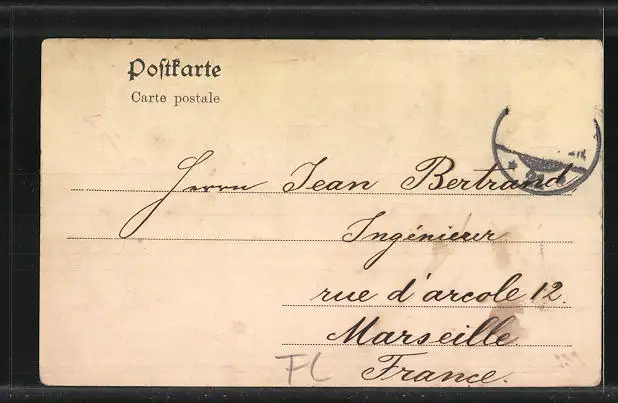 Postkarte
Carte postale
Herrn Jean Bertrand
Ingénieur
rue d'arcole 12.
Marseille
France.
FL